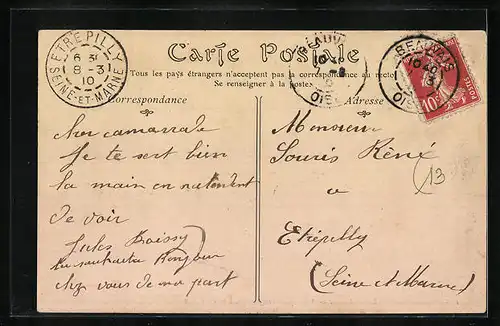 ETREPILLY
6 30
8 - 31
10
SEINE-ET-MARNE
Carte Postale
Tous les pays étrangers n'acceptent pas la correspondance au recto
Se renseigner à la poste
Correspondance
Adresse
BEAUVAIS
OISE
10c
POSTES
cher camarrade
Je te sert bien
la main en natendent
de voir
Jules Boissy
te souhaite Bonjour
chez vous de ma part
Monsieur
Souris Réné
a
Etrépilly
(Seine et Marne)
(13